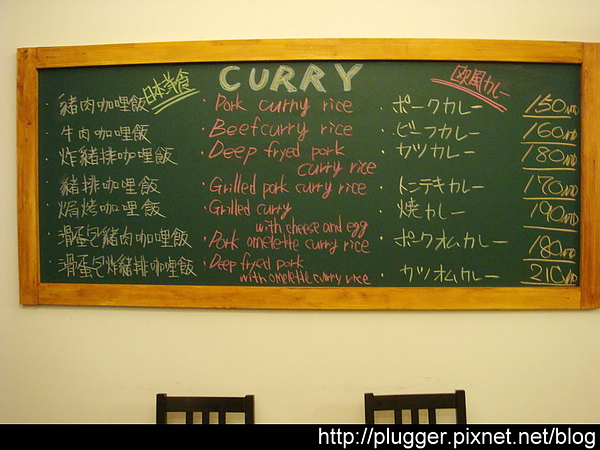 CURRY
日本洋食
欧風カレー
豬肉咖哩飯 ・Pork curry rice ・ポークカレー 150NTD
牛肉咖哩飯 ・Beef curry rice ・ビーフカレー 160NTD
炸豬排咖哩飯 ・Deep fryed pork curry rice ・カツカレー 180NTD
豬排咖哩飯 ・Grilled pork curry rice ・トンテキカレー 170NTD
焗烤咖哩飯 ・Grilled curry with cheese and egg ・焼カレー 190NTD
滑蛋包豬肉咖哩飯 ・Pork omelette curry rice ・ポークオムカレー 180NTD
滑蛋包炸豬排咖哩飯 ・Deep fryed pork with omelette curry rice ・カツオムカレー 210NTD
http://plugger.pixnet.net/blog